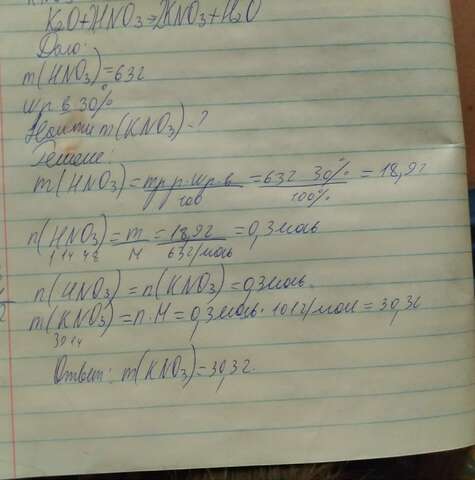 K2O+2HNO3=2KNO3+H2O
Дано:
m(HNO3)=63г
wр.в 30%
Найти m(KNO3)-?
Решение:
m(HNO3)=mр.р·wр.в/100=63г·30%/100%=18,9г
n(HNO3)=m/M=18,9г/63г/моль=0,3моль
1 14 48
n(HNO3)=n(KNO3)=0,3моль.
m(KNO3)=n·M=0,3моль·101г/моль=30,3г
39 14
Ответ: m(KNO3)=30,3г.